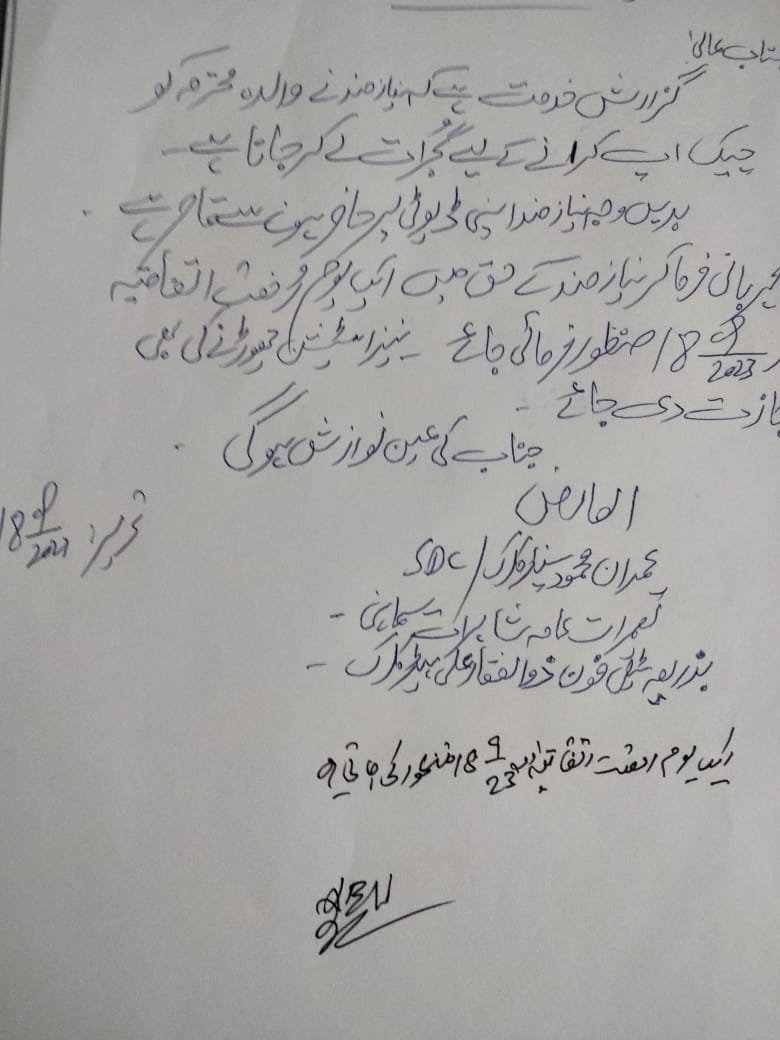 جناب عالیٰ!
گزارش خدمت ہے کہ نیازمند نے والدہ محترمہ کو
چیک اپ کرانے کے لیے گجرات لے کر جانا ہے۔
بدیں وجہ نیازمند اپنی ڈیوٹی پر حاضر ہونے سے قاصر ہے۔
مہربانی فرما کر نیازمند کے حق میں ایک یوم رخصت اتفاقیہ
18 9/2023 منظور فرمائی جائے نیز اسٹیشن چھوڑنے کی بھی
اجازت دی جائے۔
جناب کی عین نوازش ہوگی۔
العارض
تحریر: 18 9/2023
عمران محمود سینئر کلرک / SDC
تعمیرات عامہ شاہرات سماہنی۔
بذریعہ ٹیلی فون ذوالفقار علی ہیڈ کلرک۔
ایک یوم رخصت اتفاقیہ 18 9/23 منظور کی جاتی ہے